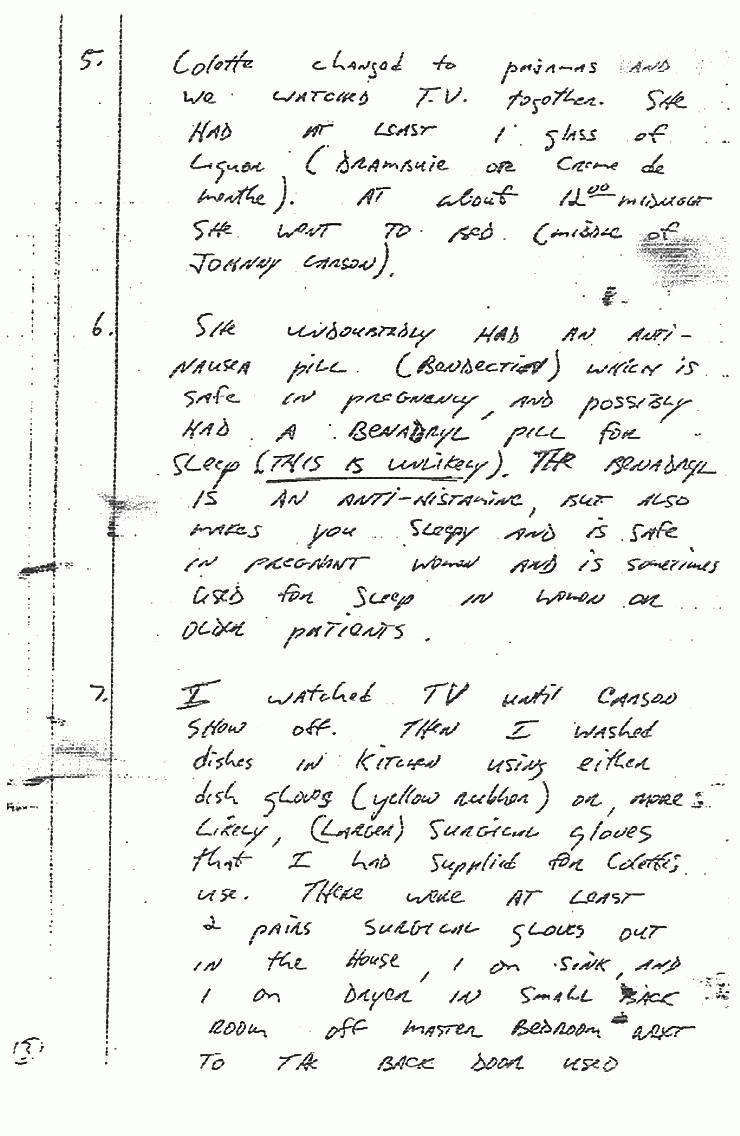 5. Colette changed to pajamas AND
we WATCHED T.V. together. SHE
HAD AT LEAST 1 glass of
Liquor (DRAMBUIE OR Creme de
menthe). AT about 12⁰⁰ MIDNIGHT
SHE WENT TO BED (MIDDLE of
JOHNNY CARSON).
6. SHE UNDOUBTEDLY HAD AN ANTI-
NAUSEA pill (BENDECTIN) WHICH IS
SAFE IN PREGNANCY, AND POSSIBLY
HAD A BENADRYL PILL FOR
SLEEP (THIS IS UNLIKELY). THE BENADRYL
IS AN ANTI-HISTAMINE, BUT ALSO
MAKES YOU SLEEPY AND IS SAFE
IN PREGNANT WOMEN AND IS SOMETIMES
USED FOR SLEEP IN WOMEN OR
OLDER PATIENTS.
7. I WATCHED TV UNTIL CARSON
SHOW OFF. THEN I WASHED
dishes IN KITCHEN USING either
dish gloves (yellow rubber) OR, MORE
LIKELY, (LARGER) SURGICAL gloves
that I had supplied for Colette's
USE. THERE WERE AT LEAST
2 PAIRS SURGICAL GLOVES OUT
IN the HOUSE, 1 on SINK, AND
1 on DRYER IN SMALL BACK
ROOM OFF MASTER BEDROOM NEXT
(5) TO THE BACK DOOR USED